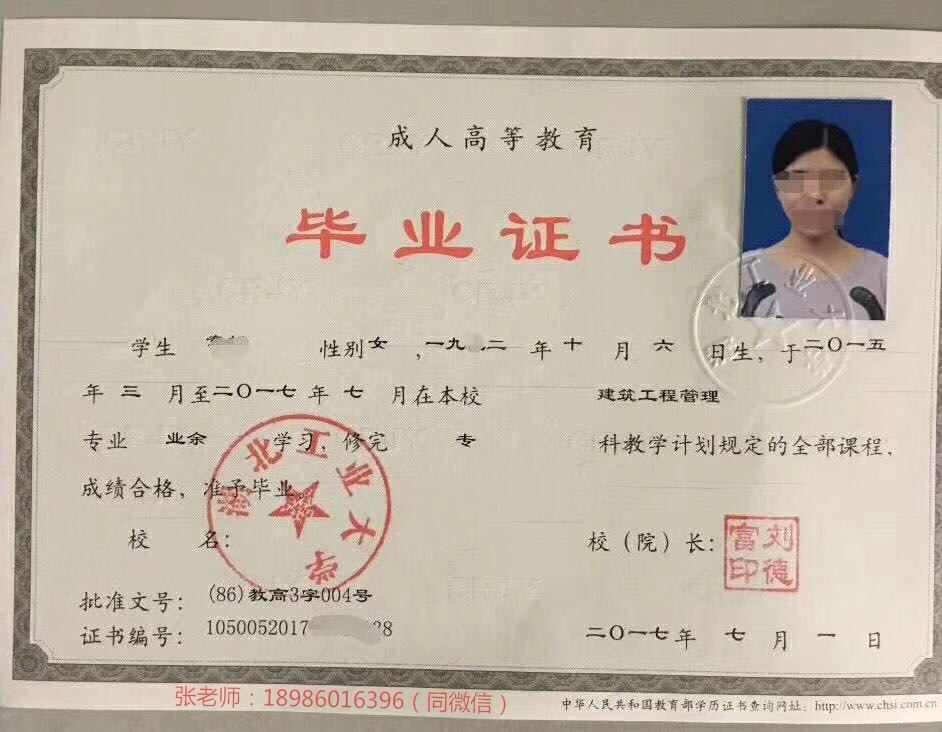 成人高等教育
毕业证书
学生 性别女,一九 二年十月六日生,于二〇一五
年三月至二〇一七年七月在本校 建筑工程管理
专业 业余 学习,修完 专 科教学计划规定的全部课程,
成绩合格,准予毕业。
湖北工业大学
校 名: 校(院)长:
刘德富印
批准文号: (86)教高3字004号
证书编号: 1050052017 28
二〇一七年七月一日
张老师:18986016396(同微信)
中华人民共和国教育部学历证书查询网址: http://www.chsi.com.cn